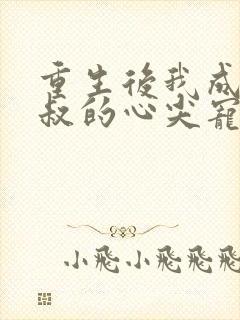 重生後我成
叔的心尖寵
小飛小飛飛飛